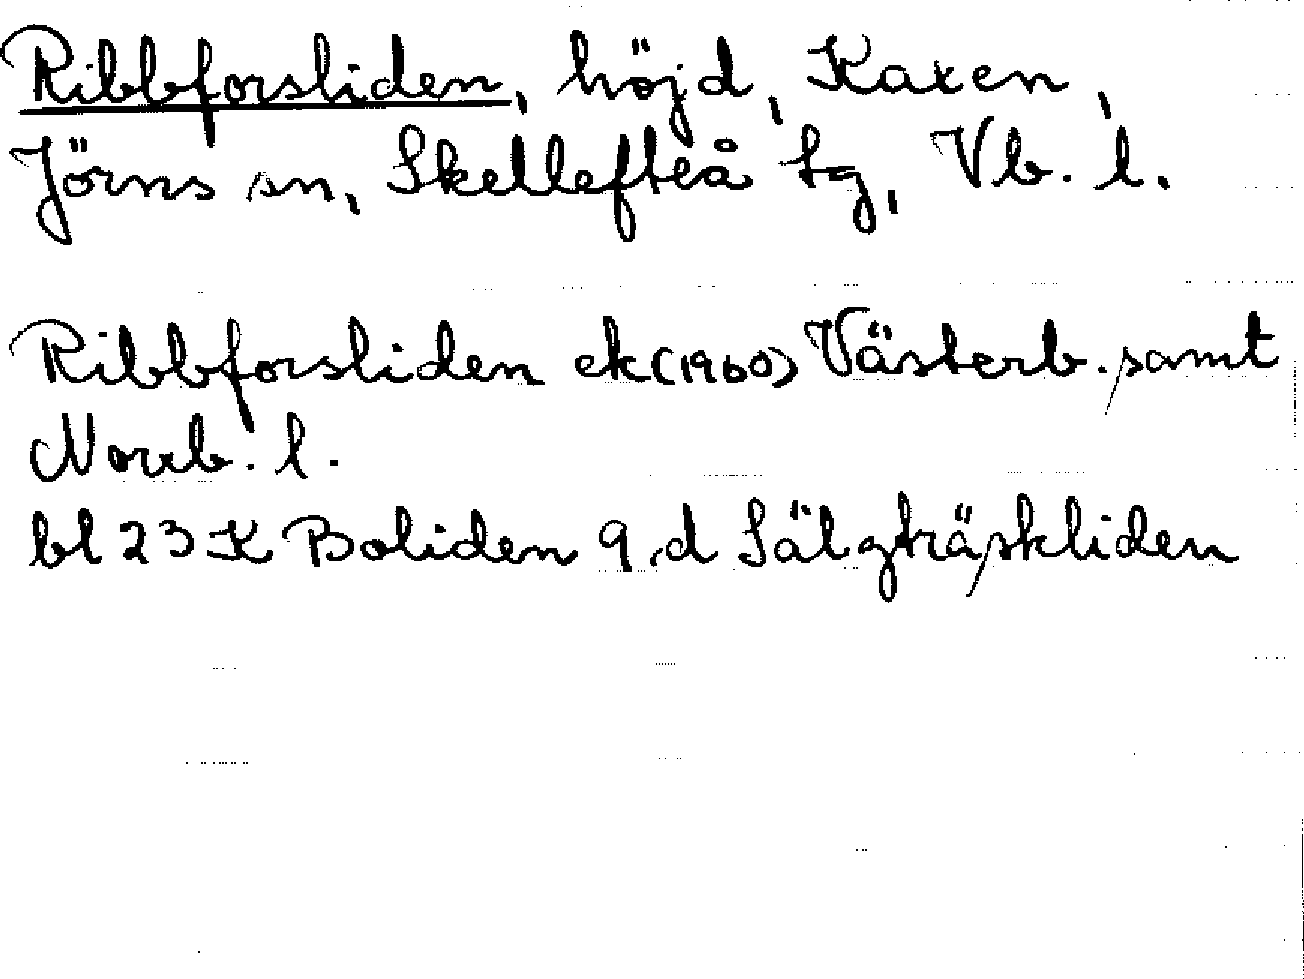 Ribbforsliden, höjd, Kaxen,
Jörns sn, Skellefteå tg, Vb. l.
Ribbforsliden ek (1960) Västerb. samt
Norrb. l.
bl 23 K Boliden 9 d Sälgträskliden